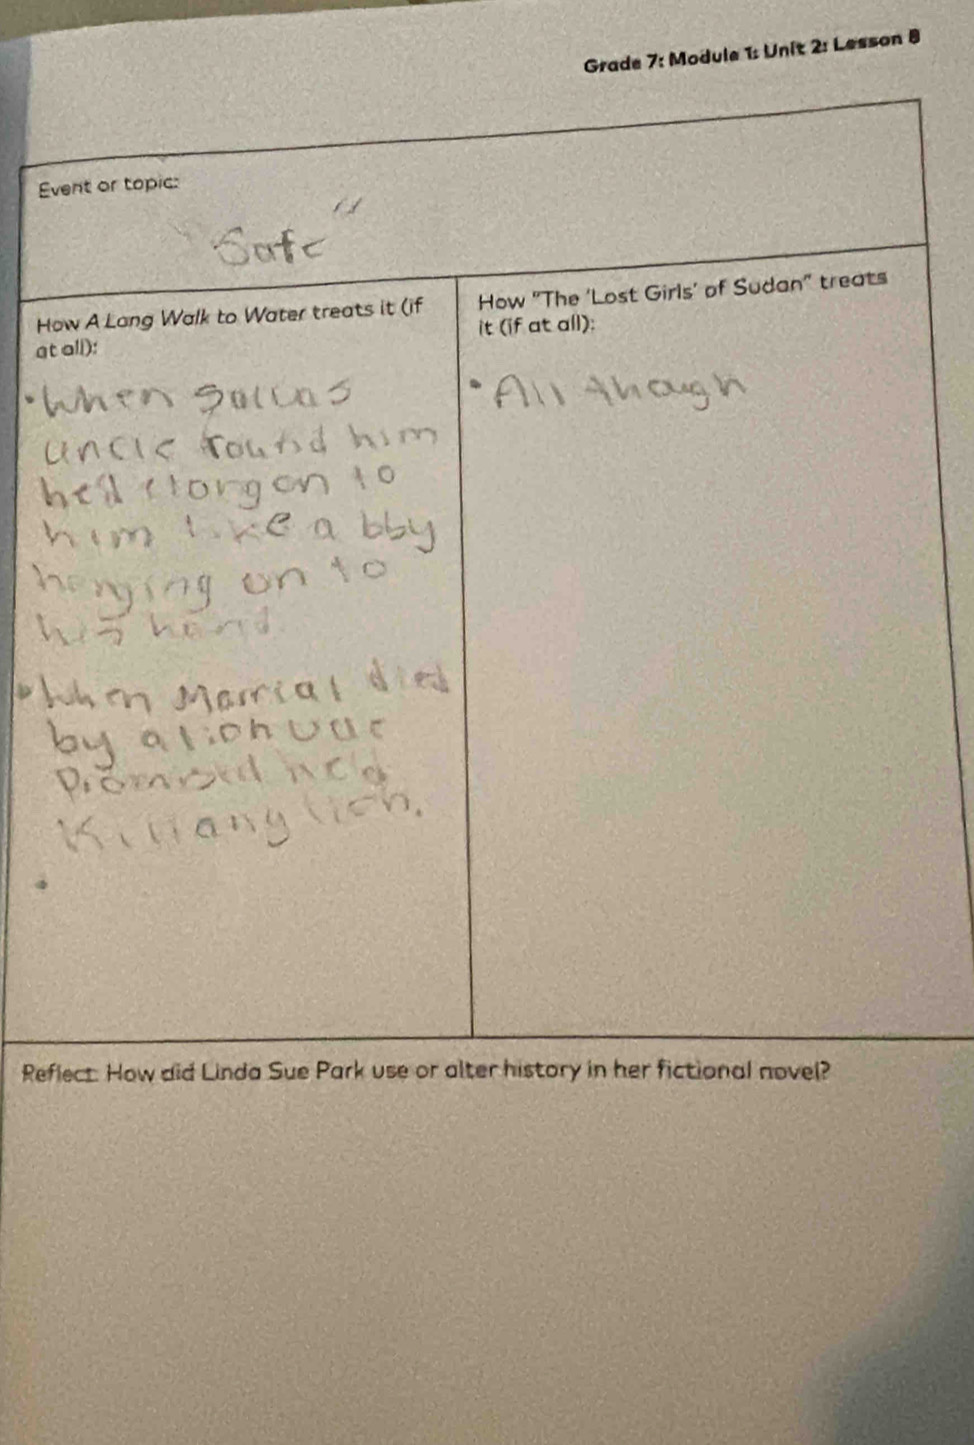 Grade 7: Module 1: Unit 2: Lesson 8
Event or topic:
"Safe"
How A Long Walk to Water treats it (if
at all):
• When
uncle found him
on to
him like a bby
hanging on to
his hand.
• When Marrial died
by a lion
Promised he'd
Kill any lion.
•
How "The 'Lost Girls' of Sudan" treats
it (if at all):
• All though
Reflect: How did Linda Sue Park use or alter history in her fictional novel?